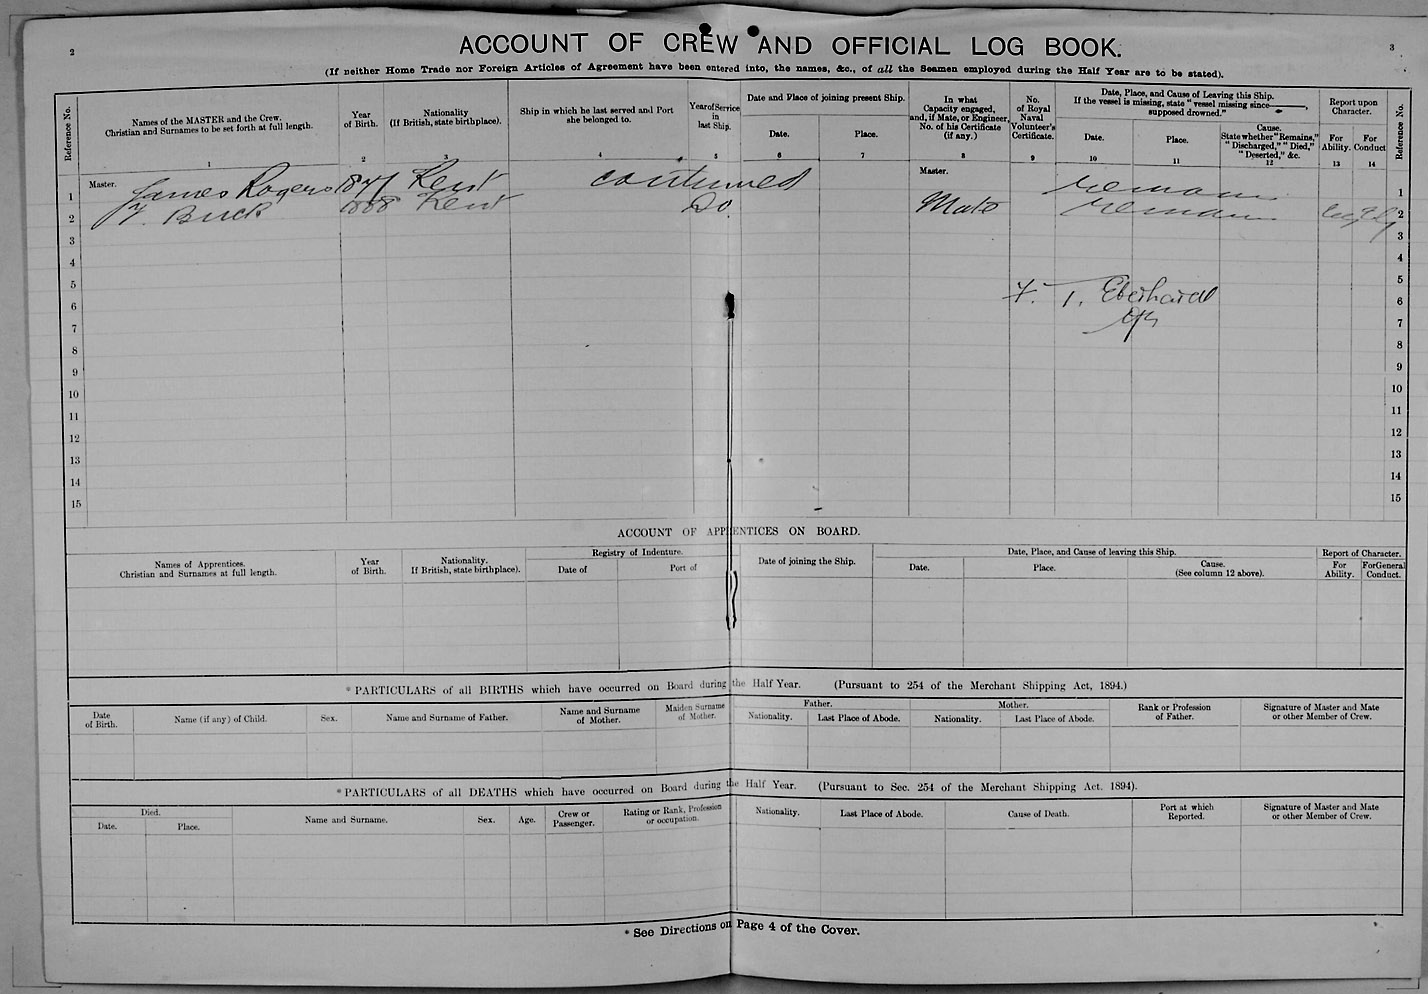 2
3
ACCOUNT OF CREW AND OFFICIAL LOG BOOK.
(If neither Home Trade nor Foreign Articles of Agreement have been entered into, the names, &c., of all the Seamen employed during the Half Year are to be stated).
Reference No.
Names of the MASTER and the Crew.
Christian and Surnames to be set forth at full length.
1
Year
of Birth.
2
Nationality
(If British, state birthplace).
3
Ship in which he last served and Port
she belonged to.
4
Year of Service
in
last Ship.
5
Date and Place of joining present Ship.
Date.
6
Place.
7
In what
Capacity engaged,
and, if Mate, or Engineer,
No. of his Certificate
(if any.)
8
No.
of Royal
Naval
Volunteer's
Certificate.
9
Date, Place, and Cause of Leaving this Ship.
If the vessel is missing, state "vessel missing since———,
supposed drowned."
Date.
10
Place.
11
Cause.
State whether "Remains,"
"Discharged," "Died,"
"Deserted," &c.
12
Report upon
Character.
For
Ability.
13
For
Conduct
14
Reference No.
1 Master. James Rogers 1871 Kent continued Master. remains 1
2 F. Buck 1888 Kent Do. Mate remains 2
3 3
4 4
5 5
F. T. Eberhardt
6 6
7 7
8 8
9 9
10 10
11 11
12 12
13 13
14 14
15 15
ACCOUNT OF APPRENTICES ON BOARD.
Names of Apprentices.
Christian and Surnames at full length.
Year
of Birth.
Nationality.
If British, state birthplace).
Registry of Indenture.
Date of
Port of
Date of joining the Ship.
Date, Place, and Cause of leaving this Ship.
Date.
Place.
Cause.
(See column 12 above).
Report of Character.
For
Ability.
For General
Conduct.
* PARTICULARS of all BIRTHS which have occurred on Board during the Half Year. (Pursuant to 254 of the Merchant Shipping Act, 1894.)
Date
of Birth.
Name (if any) of Child.
Sex.
Name and Surname of Father.
Name and Surname
of Mother.
Maiden Surname
of Mother.
Father.
Nationality.
Last Place of Abode.
Mother.
Nationality.
Last Place of Abode.
Rank or Profession
of Father.
Signature of Master and Mate
or other Member of Crew.
* PARTICULARS of all DEATHS which have occurred on Board during the Half Year. (Pursuant to Sec. 254 of the Merchant Shipping Act. 1894).
Died.
Date.
Place.
Name and Surname.
Sex.
Age.
Crew or
Passenger.
Rating or Rank, Profession
or occupation.
Nationality.
Last Place of Abode.
Cause of Death.
Port at which
Reported.
Signature of Master and Mate
or other Member of Crew.
* See Directions on Page 4 of the Cover.